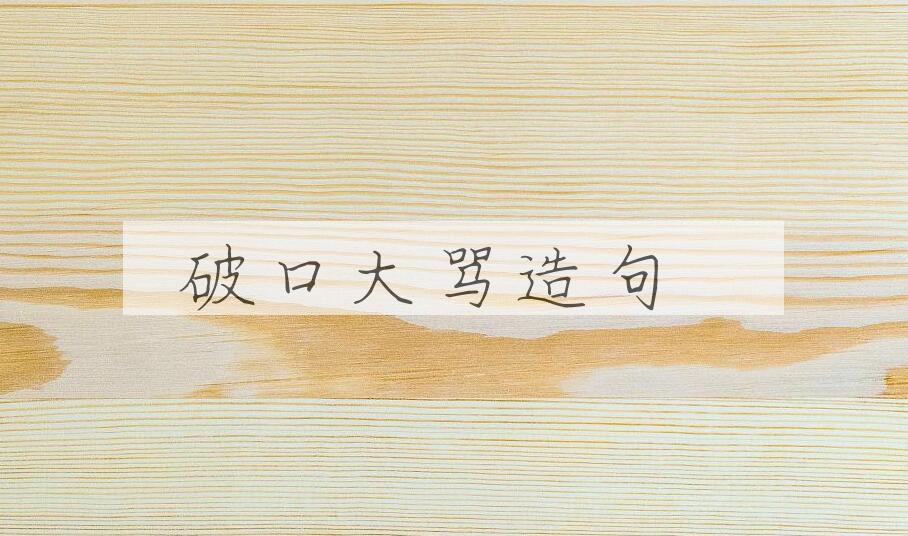 破口大骂造句